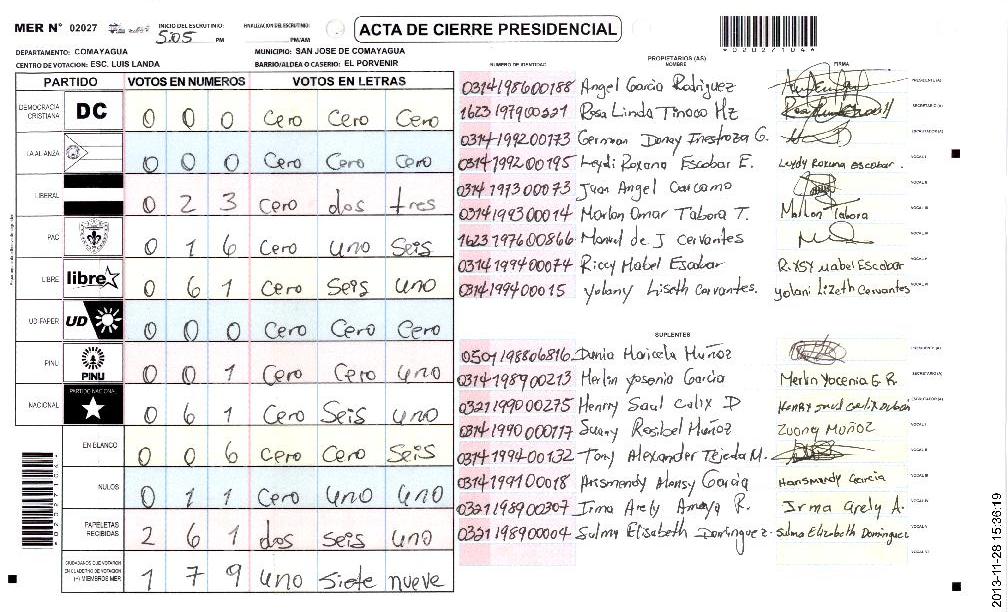 MER N° 02027 INICIO DEL ESCRUTINIO: 5:05 PM FINALIZACION DEL ESCRUTINIO: PM/AM
ACTA DE CIERRE PRESIDENCIAL
DEPARTAMENTO: COMAYAGUA MUNICIPIO: SAN JOSE DE COMAYAGUA
CENTRO DE VOTACION: ESC. LUIS LANDA BARRIO/ALDEA O CASERIO: EL PORVENIR
PARTIDO VOTOS EN NUMEROS VOTOS EN LETRAS
DEMOCRACIA CRISTIANA DC 0 0 0 Cero Cero Cero
LA ALIANZA 0 0 0 Cero Cero Cero
LIBERAL 0 2 3 Cero dos tres
PAC 0 1 6 Cero uno Seis
LIBRE libre 0 6 1 Cero Seis uno
UD-FAPER UD 0 0 0 Cero Cero Cero
PINU PINU 0 0 1 Cero Cero uno
NACIONAL PARTIDO NACIONAL 0 6 1 Cero Seis uno
EN BLANCO 0 0 6 Cero Cero Seis
NULOS 0 1 1 Cero uno uno
PAPELETAS RECIBIDAS 2 6 1 dos seis uno
CIUDADANOS QUE VOTARON EN CUADERNO DE VOTACION (+) MIEMBROS MER 1 7 9 uno Siete nueve
PROPIETARIOS (AS)
NUMERO DE IDENTIDAD NOMBRE FIRMA
0314198600188 Angel Garcia Rodriguez PRESIDENTE (A)
1623197900221 Rosa Linda Tinoco Hz SECRETARIO (A)
0314199200173 German Donay Inestroza G. ESCRUTADOR (A)
0314199200195 Leydi Roxana Escobar E. Leydy Roxana escobar. VOCAL I
0314197300073 Juan Angel Carcamo VOCAL II
0314199300014 Marlon Omar Tabora T. Marlon Tabora VOCAL III
1623197600866 Manuel de J Cervantes VOCAL IV
0314199400074 Riccy Mabel Escobar Riysy mabel Escobar VOCAL V
0314199400015 Yolany Liseth Cervantes. yolani Lizeth Cervantes VOCAL VI
SUPLENTES
0501198806816 Dunia Maricela Muñoz PRESIDENTE (A)
0314198900213 Merlin yosenia Garcia Merlin Yocenia G. R. SECRETARIO (A)
0321199000275 Henrry Saul Calix D ESCRUTADOR (A)
0314199000117 Suany Rosibel Muñoz Zuany Muñoz VOCAL I
0314199400132 Tony Alexander Tejeda M. VOCAL II
0314199100018 Arismendy Garcia Garcia VOCAL III
0321198900307 Irma Arely Amaya R. Irma Arely A. VOCAL IV
0321198900004 Sulma Elisabeth Dominguez. Sulma Elizabeth Dominguez VOCAL V
VOCAL VI
2013-11-28 15:36:19